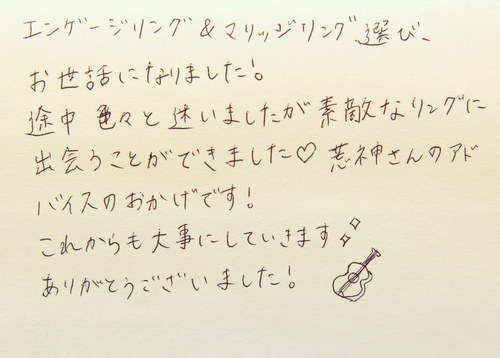 エンゲージリング&マリッジリング選び、
お世話になりました!
途中 色々と迷いましたが素敵なリングに
出会うことができました♡ 荒神さんのアド
バイスのおかげです!
これからも大事にしていきます
ありがとうございました!